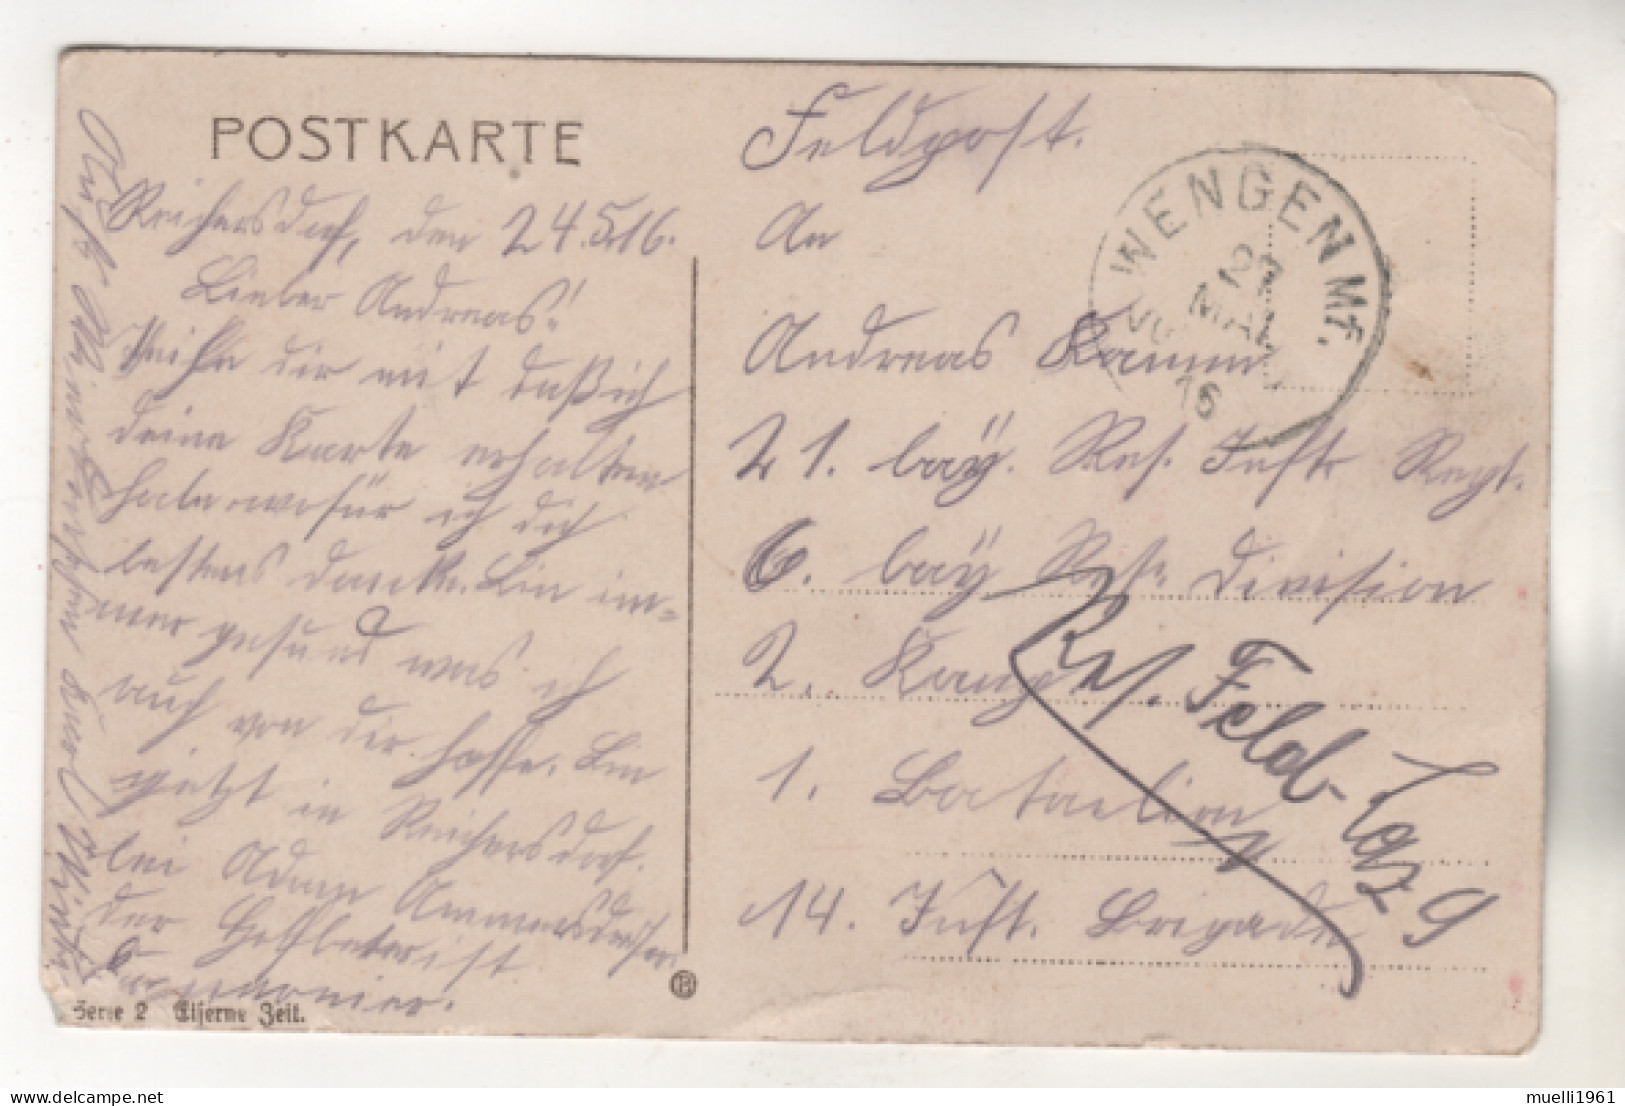 POSTKARTE
Reichersdorf, den 24.5.16.
Lieber Andreas!
Theile dir mit daß ich
deine Karte erhalten
habe wofür ich dich
bestens dancke. Bin im=
mer gesund was ich
auch von dir hoffe. Bin
jetzt in Reichersdorf.
bei Adam
der ist
Auf Wiedersehen
Serie 2 Eiserne Zeit.
B
Feldpost.
An
Andreas Kamm,
21. bay. Res. Inft. Regt.
6. bay. Res. Division
2. Komp.
1. Bataelion
14. Inft. Brigade
Res. Feld-Laz 9
WENGEN Mf.
MAI
16
delcampe.net
muelli1961